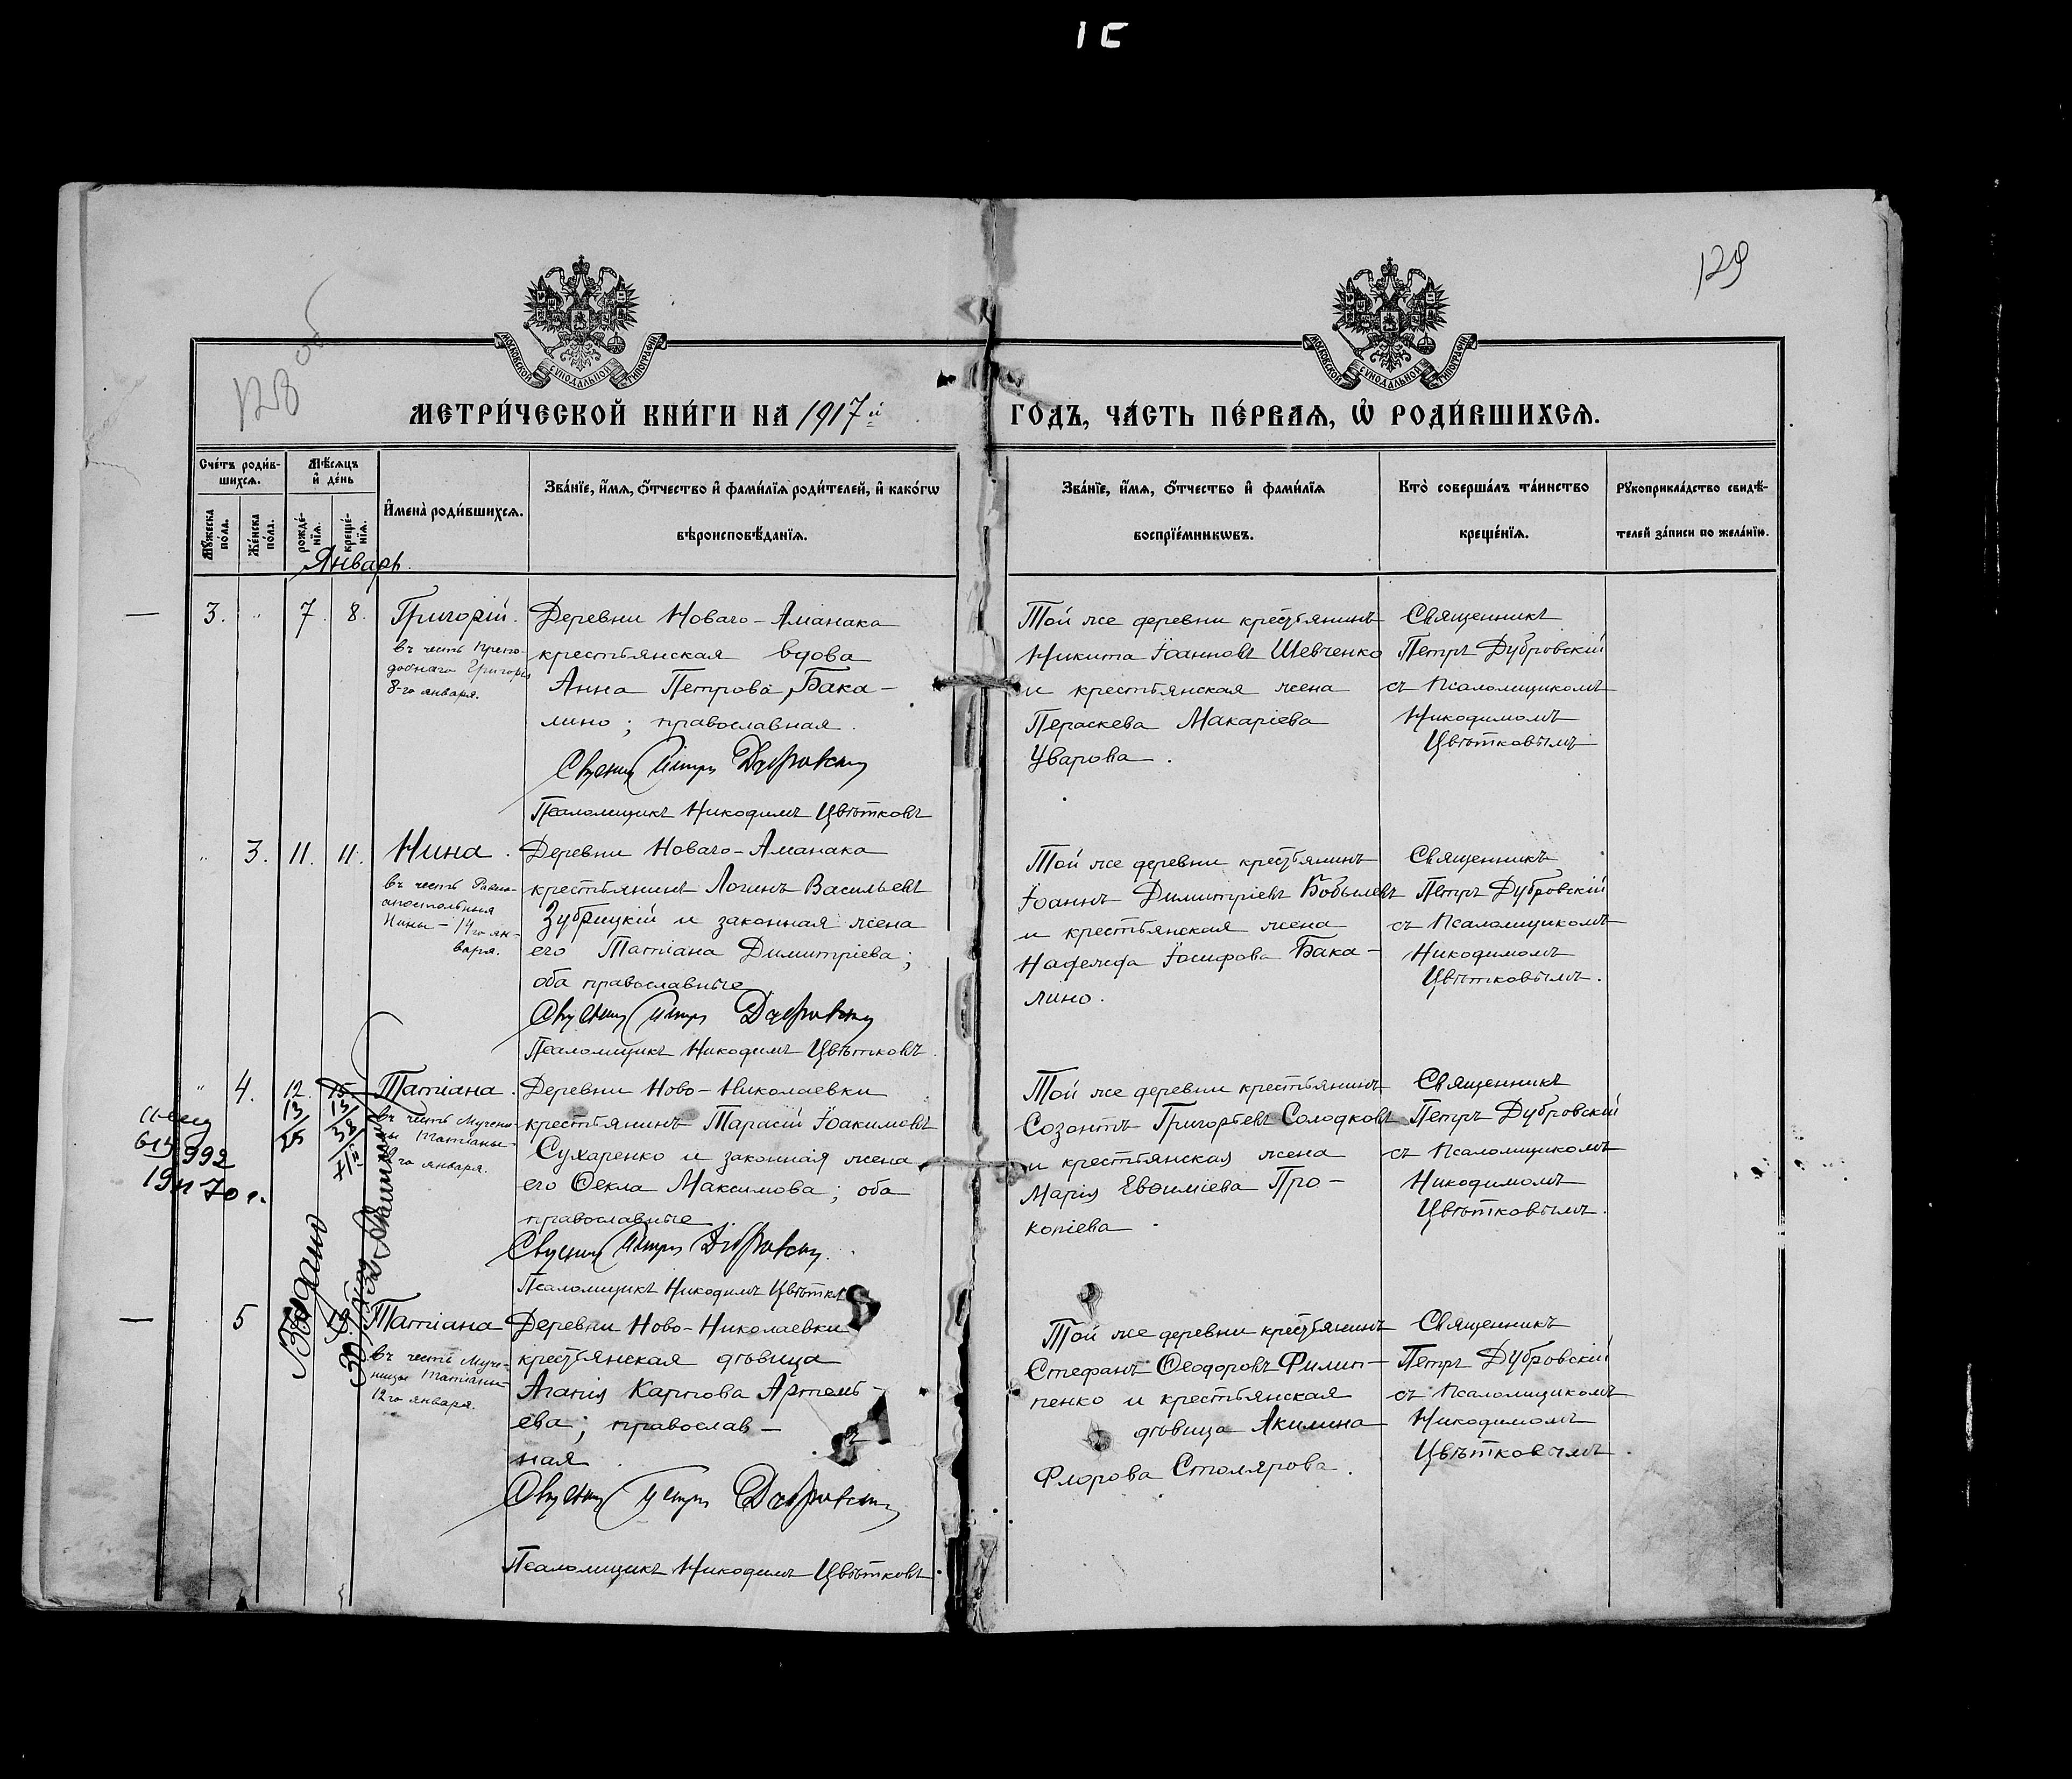 129
128 об
МОСКОВСКОЙ СУНОДАЛЬНОЙ ТИПОГРАФИИ
МОСКОВСКОЙ СУНОДАЛЬНОЙ ТИПОГРАФИИ
МЕТРИ́ЧЕСКОЙ КНИ́ГИ НА 1917й ГО́ДЪ, ЧА́СТЬ ПЕ́РВАѦ, Ѡ҆ РОДИ́ВШИХСѦ.
Сче́тъ роди́в-
шихсѧ.
Мѣ́сѧцъ
и҆ де́нь
Мꙋ́жеска
по́ла.
Же́нска
по́ла.
рожде́-
нїѧ.
креще́-
нїѧ.
Январь.
И҆мена̀ роди́вшихсѧ.
Зва́нїе, и҆́мѧ, ѻ҆́тчество и҆ фами́лїѧ роди́телей, и҆ како́гѡ
вѣроисповѣ́данїѧ.
Зва́нїе, и҆́мѧ, ѻ҆́тчество и҆ фами́лїѧ
воспрїе́мникѡвъ.
Кто̀ соверша́лъ та́инство
креще́нїѧ.
Рꙋкоприкла́дство свидѣ́-
телей за́писи по жела́нїю.
3. " 7. 8.
Григорій.
въ честь Препо-
добнаго Григорія
8-го января.
Деревни Новаго-Аманака
крестьянская вдова
Анна Петрова Бака-
лино; православная.
Свщенникъ Петръ Дубровскій
Псаломщикъ Никодимъ Цвѣтковъ
Той же деревни крестьянинъ
Никита Іоанновъ Шевченко
и крестьянская жена
Пераскева Макаріева
Уварова.
Священникъ
Петръ Дубровскій
съ Псаломщикомъ
Никодимомъ
Цвѣтковымъ
" 3. 11. 11.
Нина.
въ честь Равно-
апостольныя
Нины - 14го ян-
варя.
Деревни Новаго-Аманака
крестьянинъ Логинъ Васильевъ
Зубрицкій и законная жена
его Татіана Димитріева;
оба православные
Свщенникъ Петръ Дубровскій
Псаломщикъ Никодимъ Цвѣтковъ.
Той же деревни крестьянинъ
Іоаннъ Димитріевъ Бобылевъ
и крестьянская жена
Надежда Іосифова Бака-
лино.
Священникъ
Петръ Дубровскій
съ Псаломщикомъ
Никодимомъ
Цвѣтковымъ.
" 4. 12. 15
13
25
992
Выдано
Татіана.
въ честь Мучени-
цы Татіаны
12го января.
Деревни Ново-Николаевки
крестьянинъ Тарасій Іоакимовъ
Сухаренко и законная жена
его Ѳекла Максимова; оба
православные.
Свщенникъ Петръ Дубровскій.
Псаломщикъ Никодимъ Цвѣтк
Той же деревни крестьянинъ
Созонтъ Григорьевъ Солодковъ
и крестьянская жена
Марія Евѳиміева Про-
копіева.
Священникъ
Петръ Дубровскій
съ Псаломщикомъ
Никодимомъ
Цвѣтковымъ.
5
Татіана
въ честь Муче-
ницы Татіаны
12го января.
Деревни Ново-Николаевки
крестьянская дѣвица
Агапія Карпова Артемь-
ева; православ-
ная.
Свщенникъ Петръ Дубровскій
Псаломщикъ Никодимъ Цвѣтковъ.
Той же деревни крестьянинъ
Стефанъ Ѳеодоровъ Филип-
пенко и крестьянская
дѣвица Акилина
Флорова Столярова.
Священникъ
Петръ Дубровскій
съ Псаломщикомъ
Никодимомъ
Цвѣтковымъ.